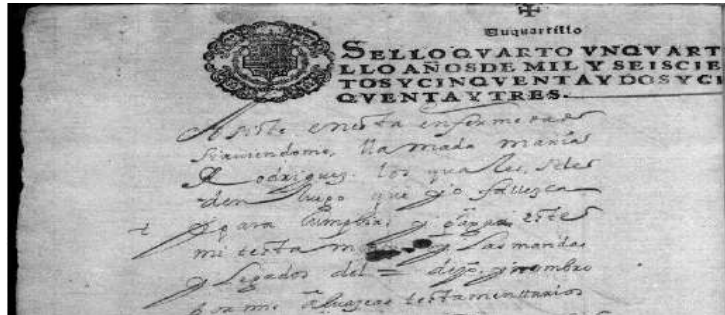 Vnquartillo
SELLO QVARTO VN QVART
LLO AÑOS DE MIL Y SEISCIE
TOS Y CINQVENTA Y DOS Y CI
QVENTA Y TRES.
Asiste en esta enfermedad
siruiendome, llamada maria
Rodriguez. los quales, sele
den luego que yo fallezca
para cumplir, y pagar este
mi testa y las mandas
y Legados del = dejo, y nombro
por mis albazeas testamenttarios